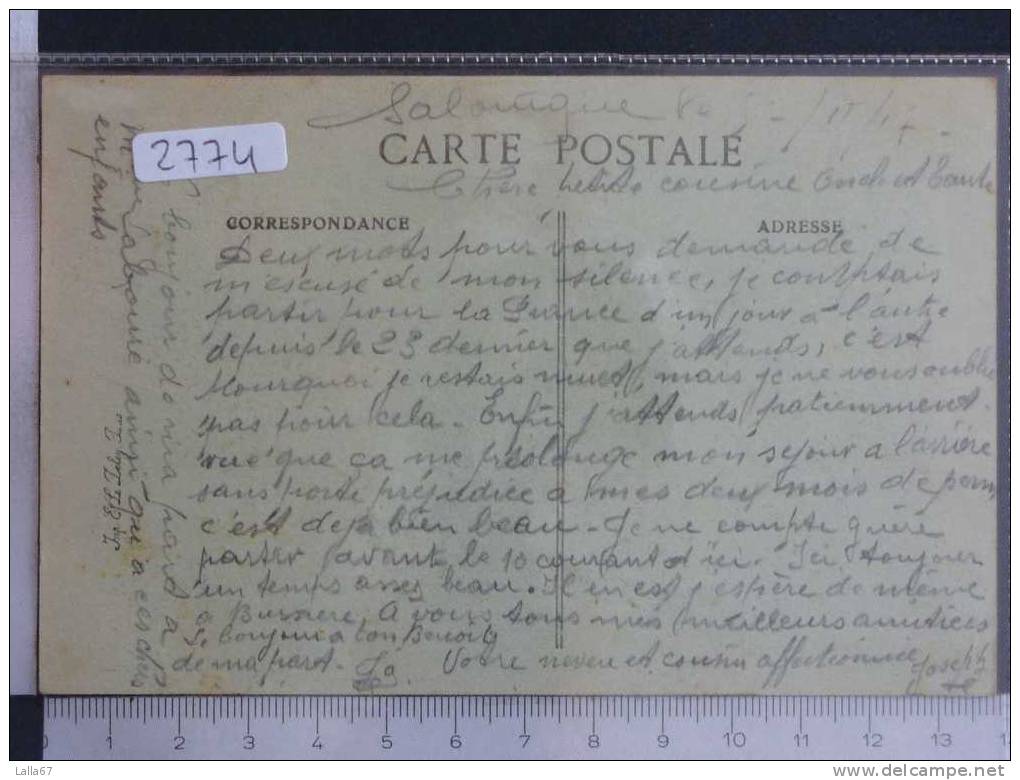 Salonique
CARTE POSTALE
Chère petite cousine Oncle et Tante
CORRESPONDANCE
ADRESSE
Deux mots pour vous demandé de
m'escusé de mon silence, je comptais
partir pour la France d'un jour à l'autre
depuis le 23 dernier que j'attends, c'est
pourquoi je restais muet, mais je ne vous oublie
pas pour cela. Enfin j'attends patiemment.
vue que ça me prolonge mon séjour a l'arrière
sans porté préjudice a mes deux mois de perm
c'est déjà bien beau. Je ne compte guère
partir avant le 10 courant d'ici. Ici toujours
un temps assez beau. Il en est j'espère de même
a A vous tous mes meilleurs amitiés
bonjour a ton
de ma part. Votre neveu et cousin affectionné Joseph
bonjour de ma part a
ainsi qu'a ces chers
enfants
2774
0 1 2 3 4 5 6 7 8 9 10 11 12 13
Lalla67
delcampe.net